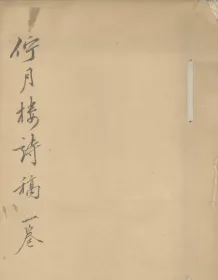 佇月楼詩稿一卷